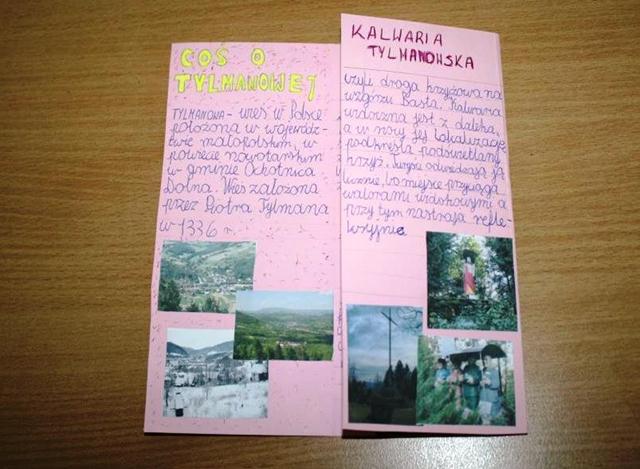 COŚ O
TYLMANOWEJ
TYLMANOWA - wieś w Polsce
położona w wojewódz-
twie małopolskim, w
powiecie nowotarskim
w gminie Ochotnica
Dolna. Wieś założona
przez Piotra Tylmana
w 1336 r.
KALWARIA
TYLMANOWSKA
czyli droga krzyżowa na
wzgórzu Baszta. Kalwaria
widoczna jest z daleka,
a w nocy jej lokalizację
podkreśla podświetlany
krzyż. Turyści odwiedzają ją
licznie, bo miejsce przyciąga
walorami widokowymi a
przy tym nastraja refle-
ksyjnie.